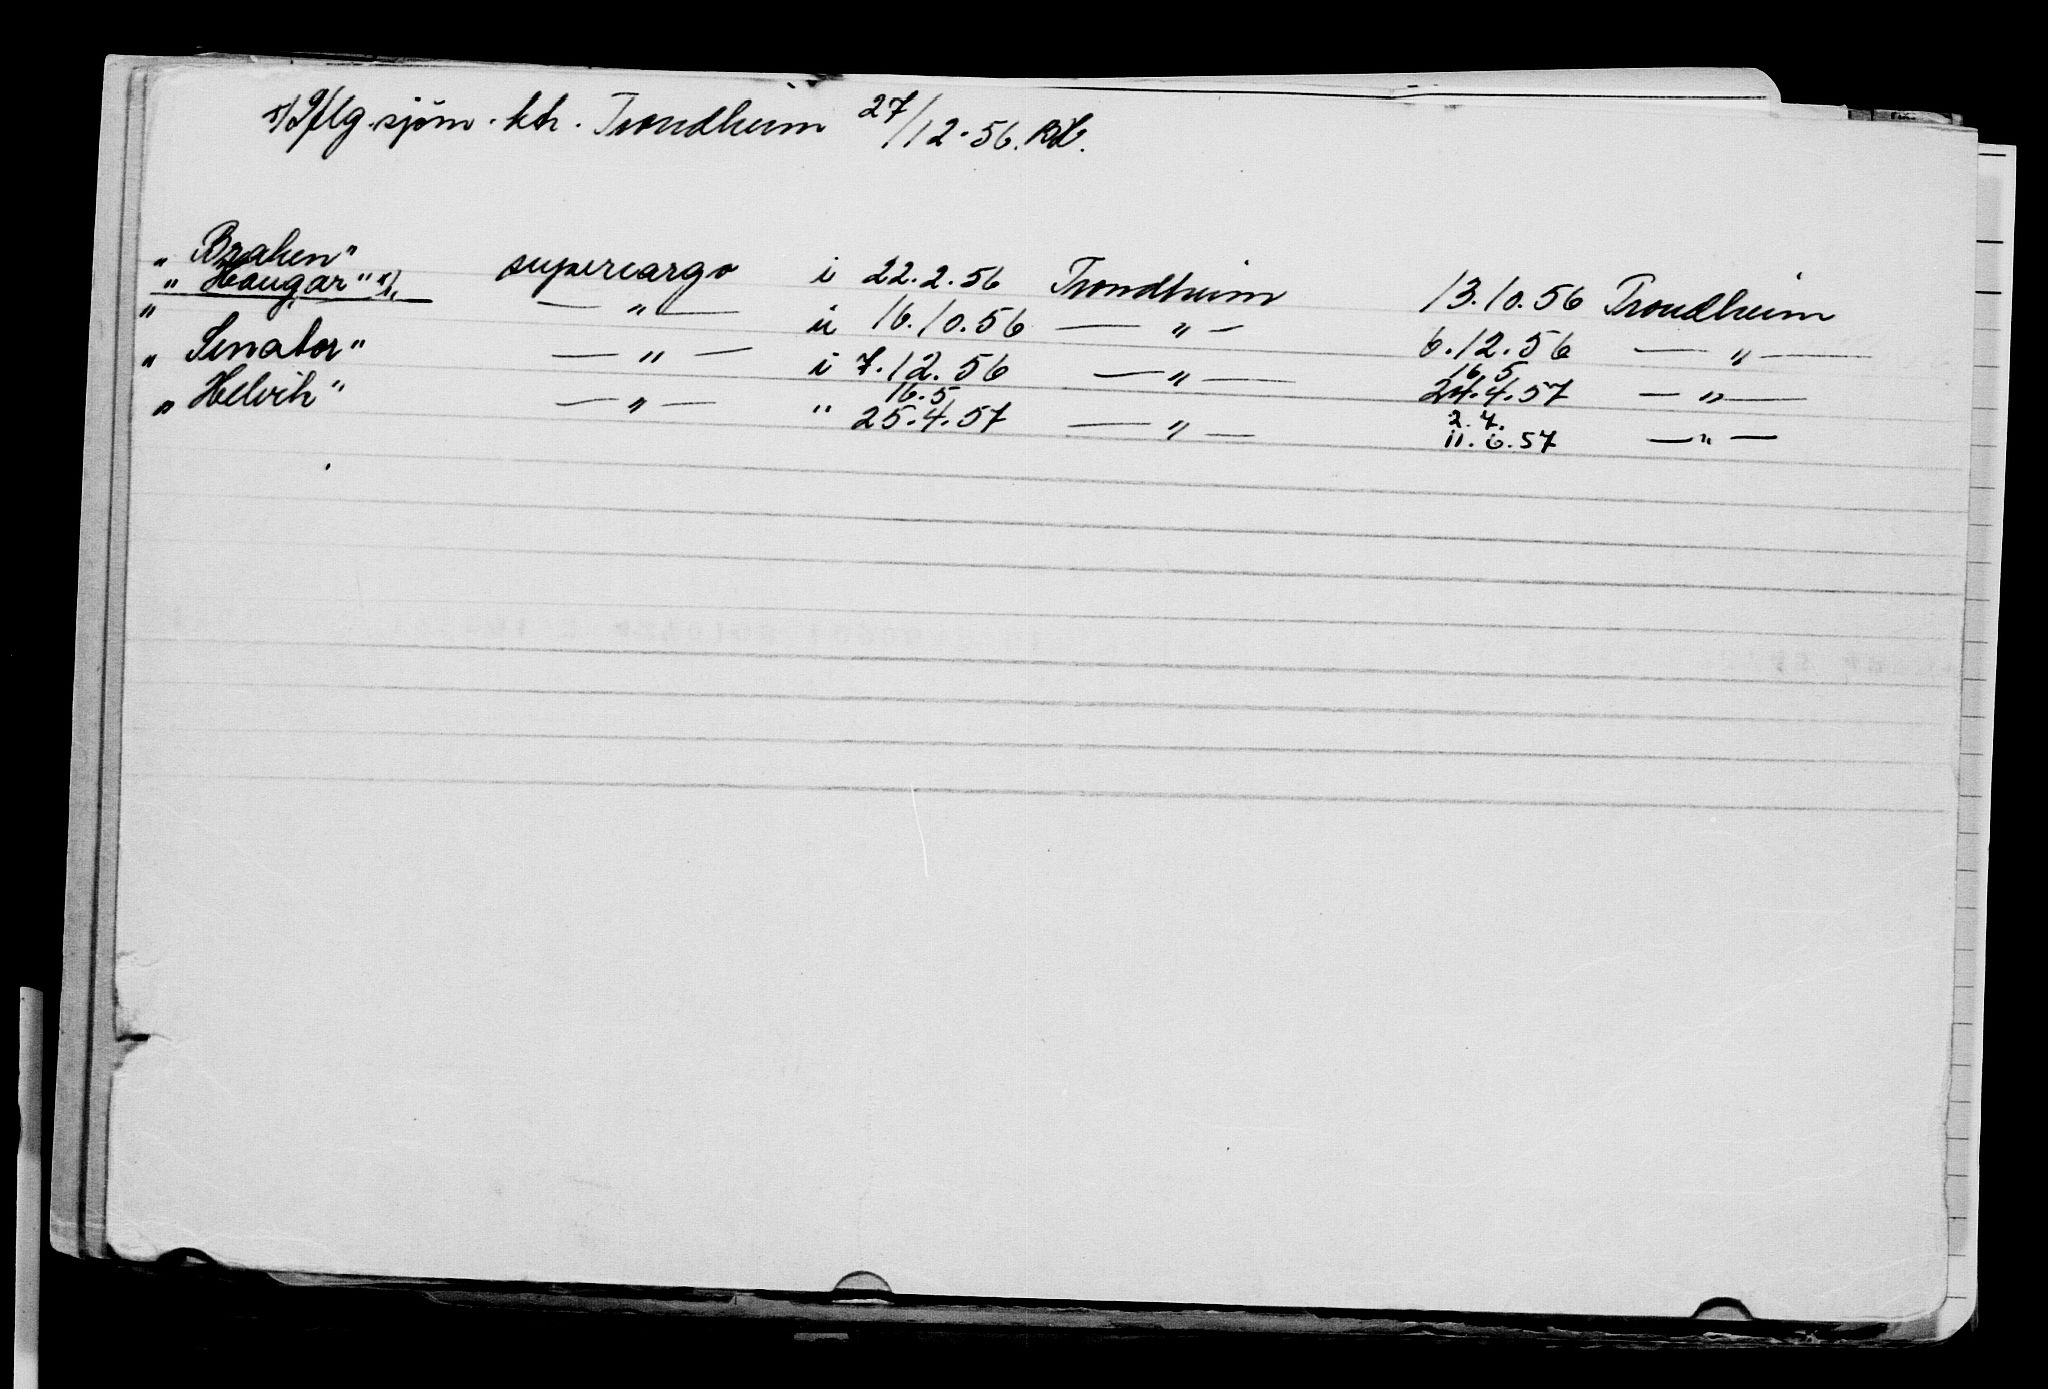 x) Iflg. sjøm. ktr. Trondheim 27/12-56. RH.
" Braken" supercargo i 22.2.56 Trondheim 13.10.56 Trondheim
" Haugar" x) — " — u 16.10.56 — " — 6.12.56 — " —
" Senator" — " — i 7.12.56 — " — 16.5 24.4.57 — " —
" Helvik" — " — " 16.5 25.4.57 — " — 2.7. 11.6.57 — " —